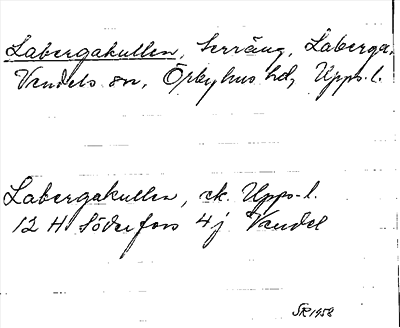 Labergakullen, terräng, Laberga,
Vendels sn, Örbyhus hd, Upps. l.
Labergakullen, ek. Upps. l.
12 H Söderfors 4j Vendel
SR 1958